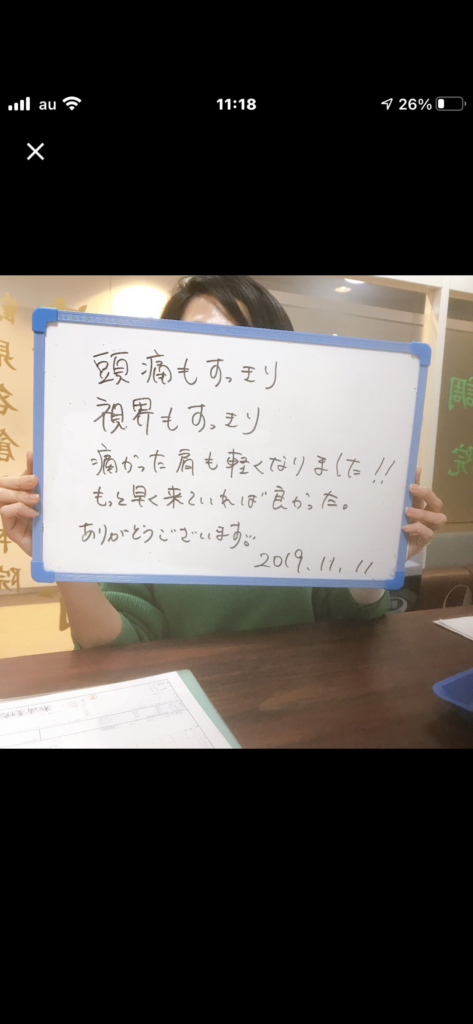 au
11:18
26%
頭痛もすっきり
視界もすっきり
痛かった肩も軽くなりました!!
もっと早く来ていれば良かった。
ありがとうございます。
2019.11.11
調
院